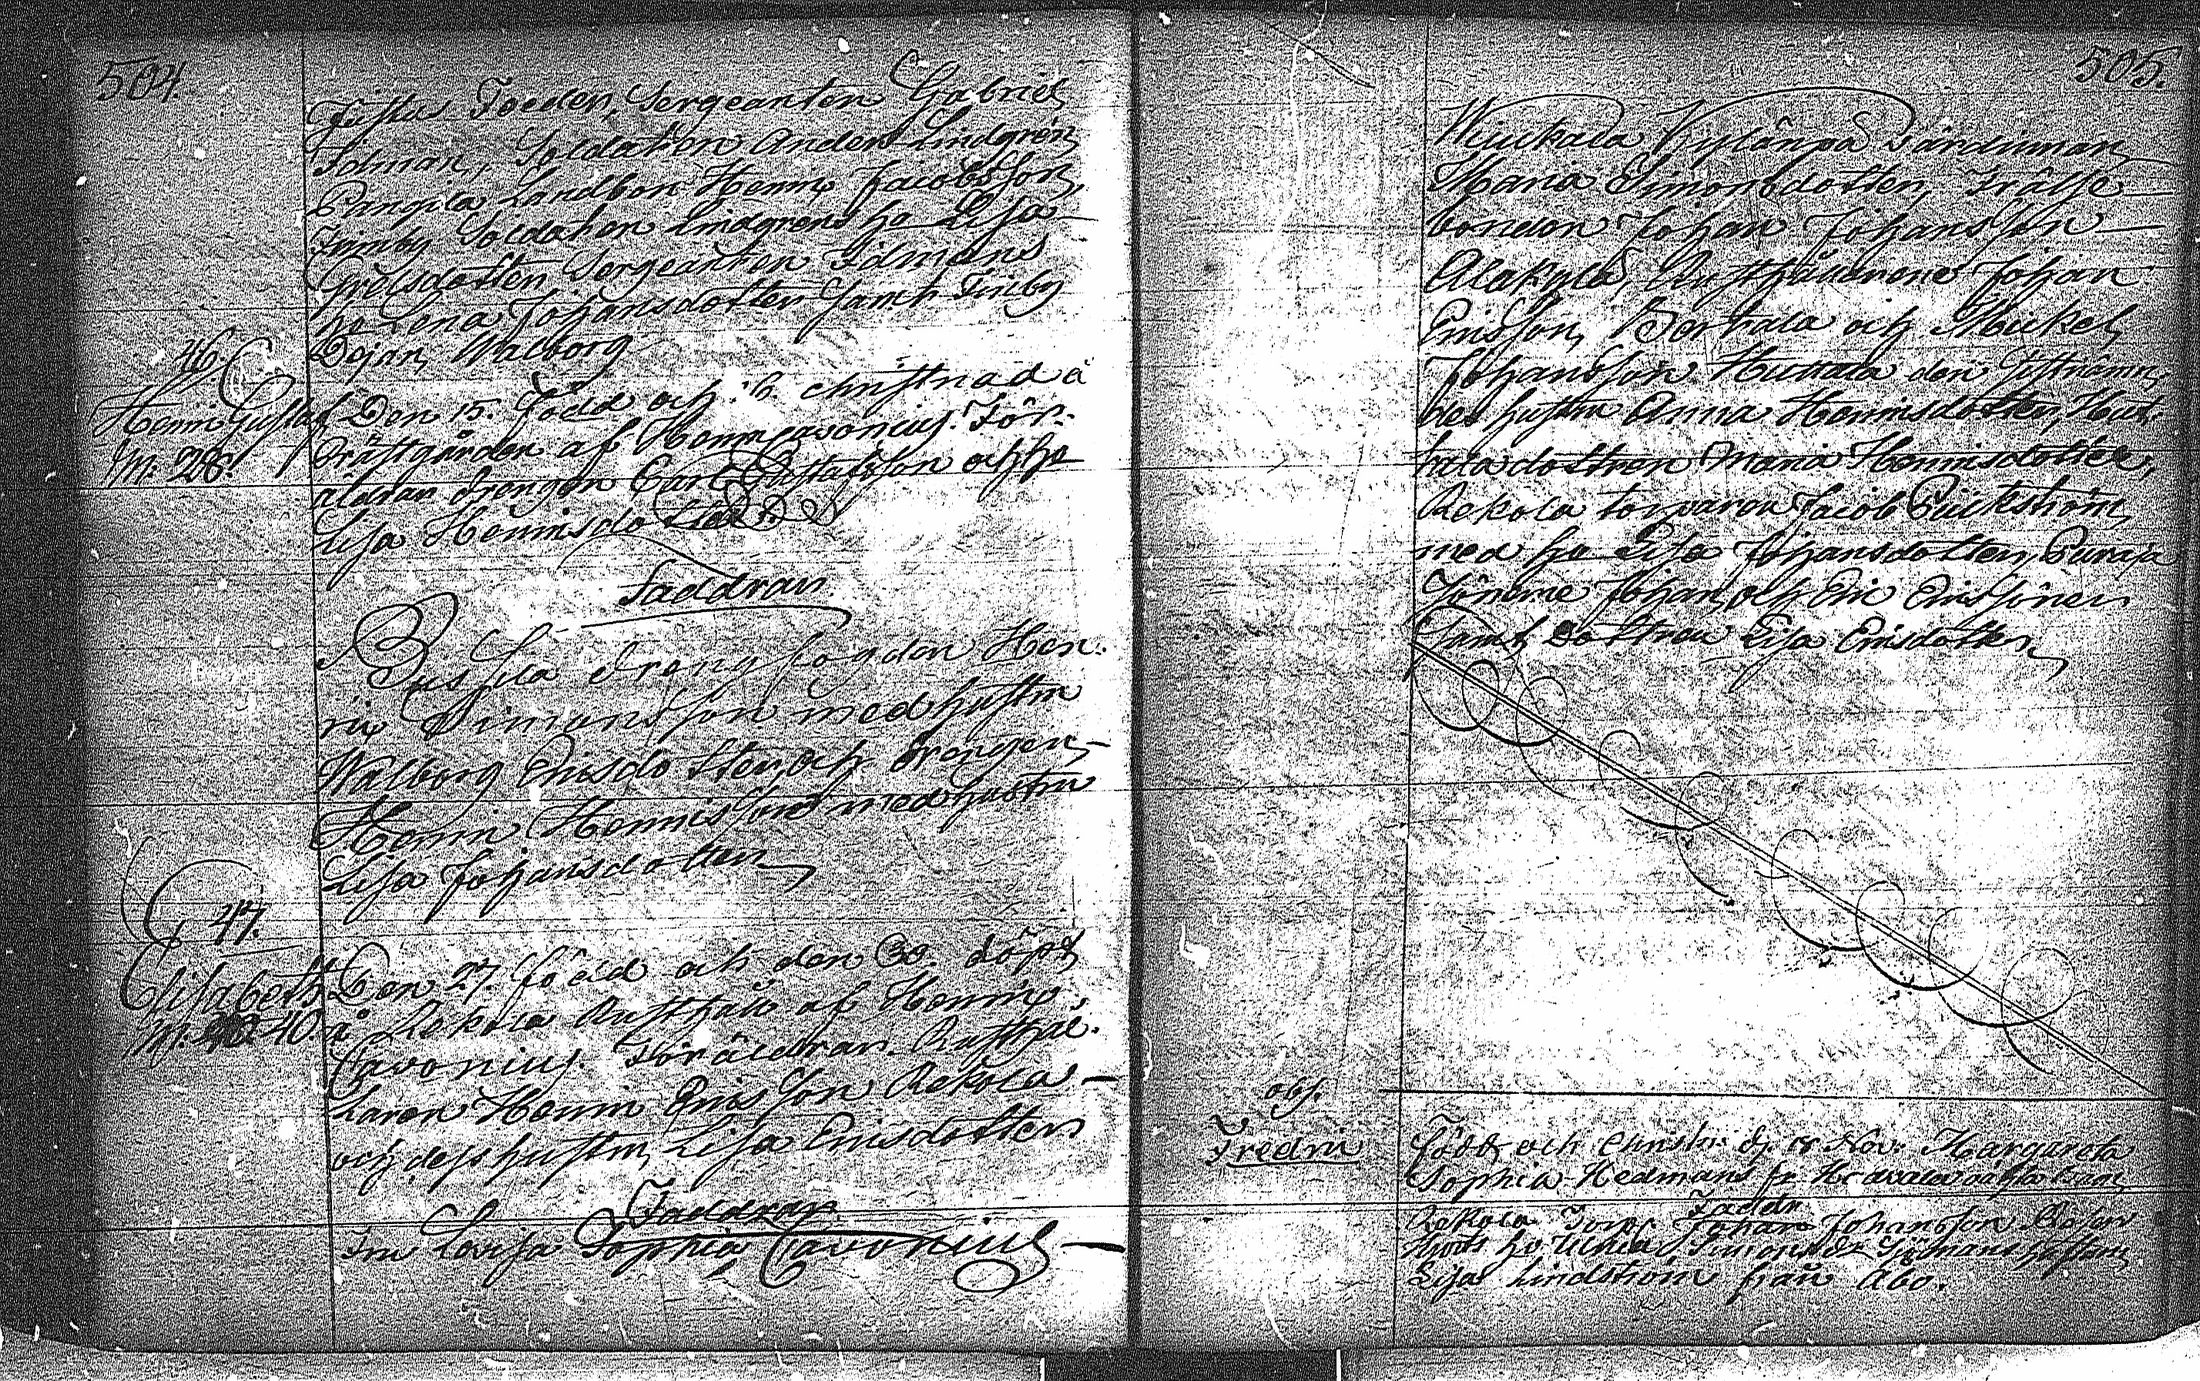 504.
Justus Toeden, Sergeanten Gabriel
Idman, Soldaten Anders Lindgren,
Pungila Landbon Henric Jacobsson,
Finby Soldaten Lindgrens ho Lisa
Grelsdotter, Sergeanten Idmans
ho Lena Johansdotter samt Finby
Dejan, Walborg
46.
Henric Gustaf
M: 28.
Den 15. Född och christnad å
Prästgården af Henric Cavonius. För-
äldrar drengen Carl Gustafsson och ho
Lisa Henricsdotter
Faddrar
drengfogden Hen-
ric Simonsson med hustru
Walborg Ericsdotter, och drengen
Henric Henricsson med hustru
Lisa Johansdotter
47.
Elisabeth
M. 40.
Den 27. född och den 30. döpt
å Rekola Rusthåll af Henric
Cavonius. Föräldrar Rusthål-
laren Henric Ericsson Rekola
och dess hustru, Lisa Ericsdotter
Faddrar
Fru Lovisa Sophia Cavonius
505.
Maria Simonsdotter, Frälse-
bonden Johan Johansson
Alakylä, Rusthållarene Johan
Ericsson, Bertala och Mickel
Johansson Huttala den sistnämn-
des hustru Anna Henricsdotter, Hut-
tala dottren Maria Henricsdotter,
Rekola torparen Jacob Bäckström
med ho Lisa Johansdotter,
Sönerne Johan och Eric Ericssöner
samt Dottren Lisa Ericsdotter.
obs.
Född och Christn: d. 18 Nov: Margareta
Sophia Hedmans fr
Faddr
Rekola Torp: Johan Johansson
ho Ulrica Simonsdr hustru
Lisa Lindström från Åbo.